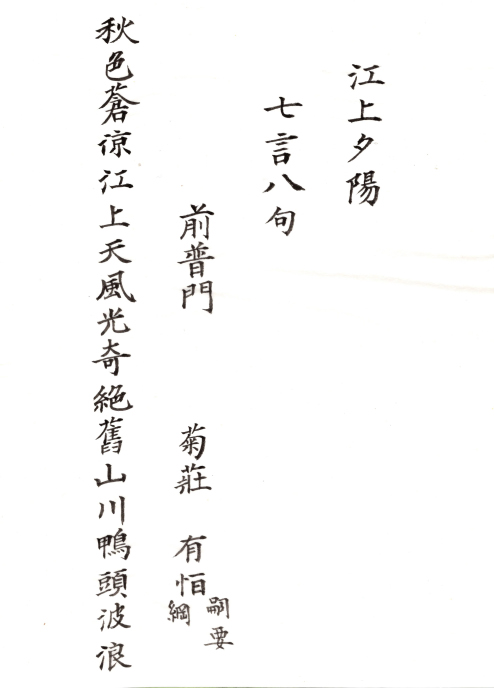 江上夕陽
七言八句
前普門 菊莊 有恒 嗣要綱
秋色蒼凉江上天風光奇絶舊山川鴨頭波浪